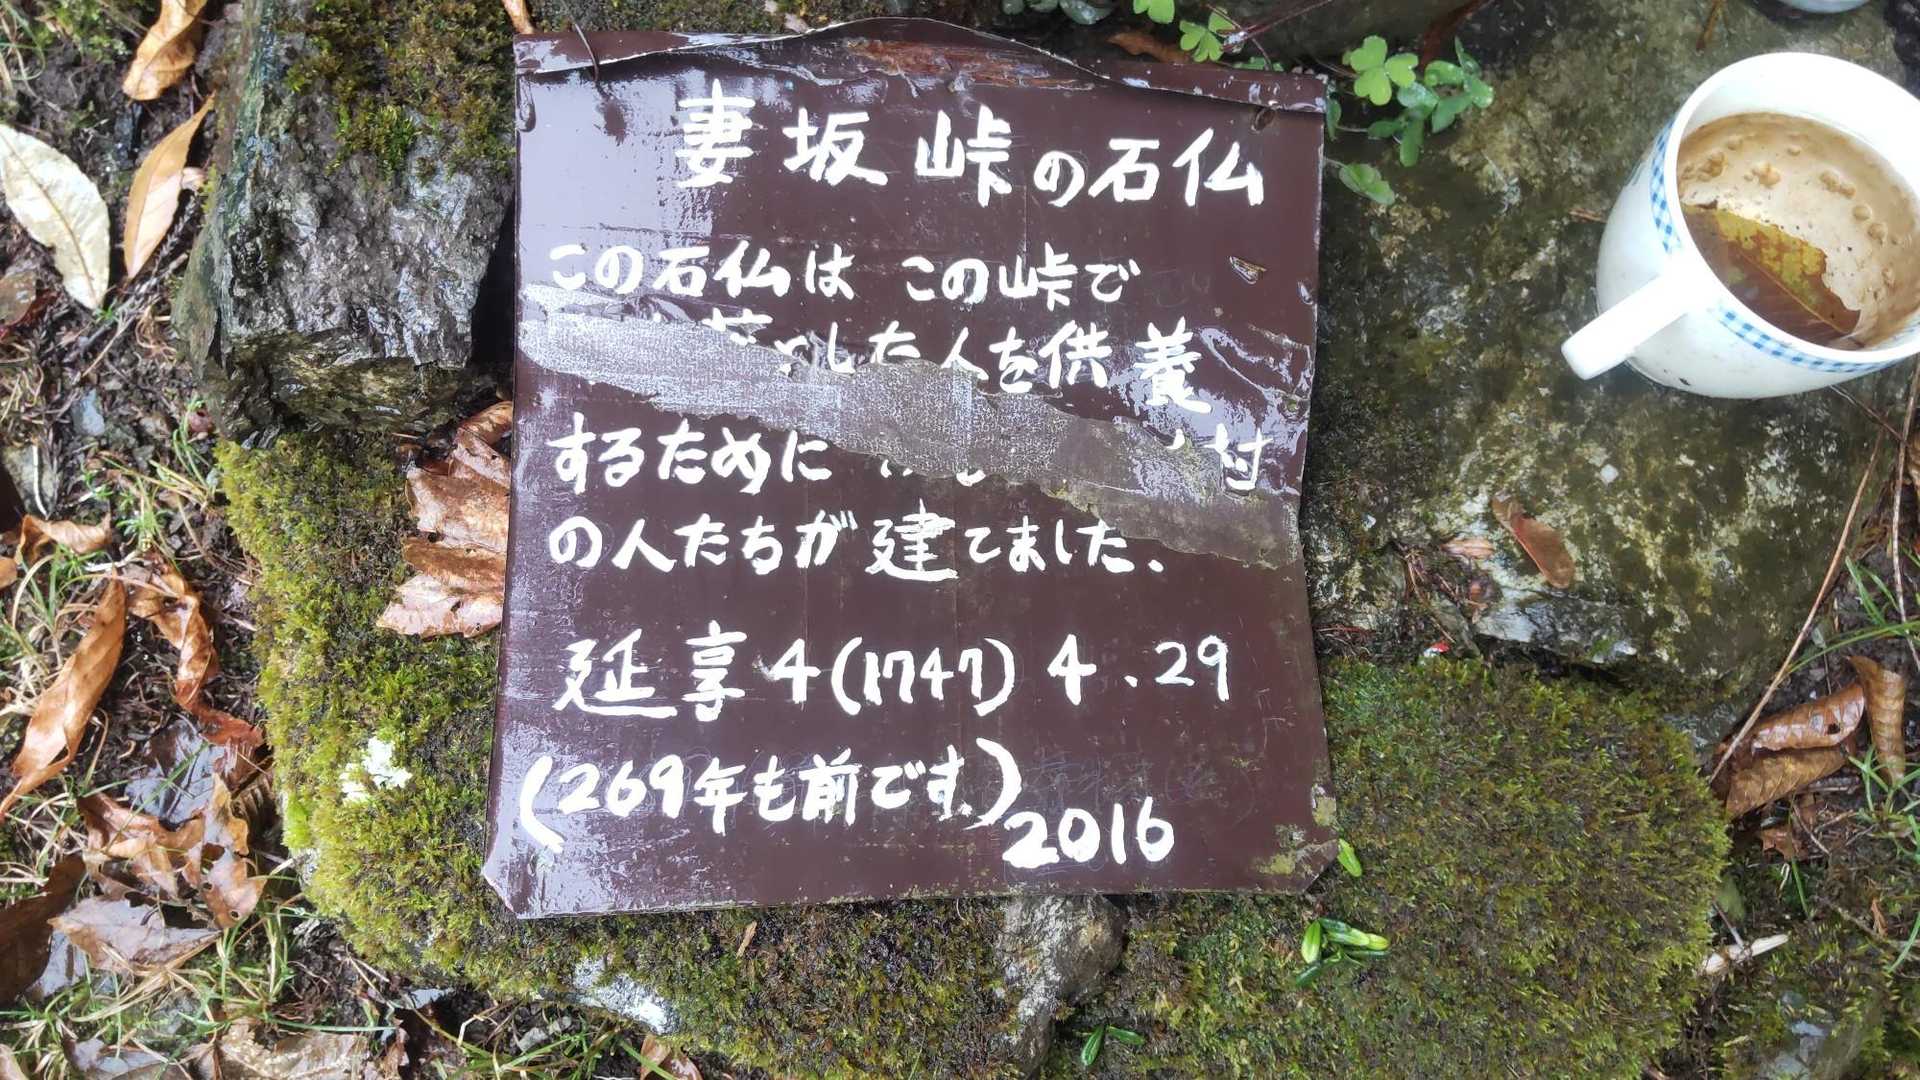 妻坂峠の石仏
この石仏は この峠で
落とした人を供養
するために 村
の人たちが建てました、
延享4(1747)4.29
(269年も前です。)
2016